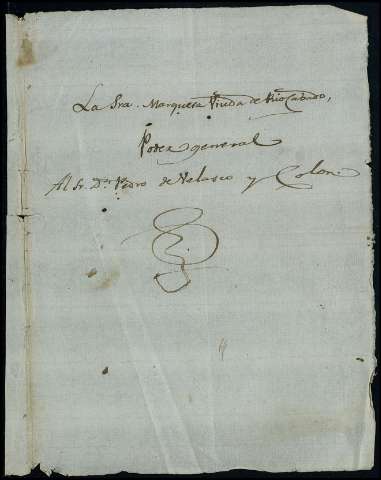 La Sra. Marquesa Viuda de Rio Cabado,
Poder general
Al Sr. Dn. Pedro de Velasco y Colon.